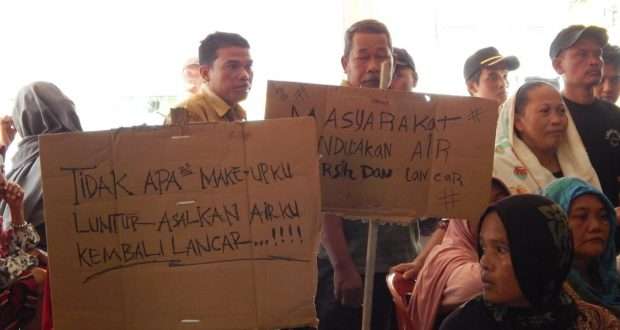 TIDAK APA²" MAKE-UPKU
LUNTUR ASALKAN AIRKU
KEMBALI LANCAR...!!!!
# MASYARAKAT #
AIR
DAN LANCAR
#